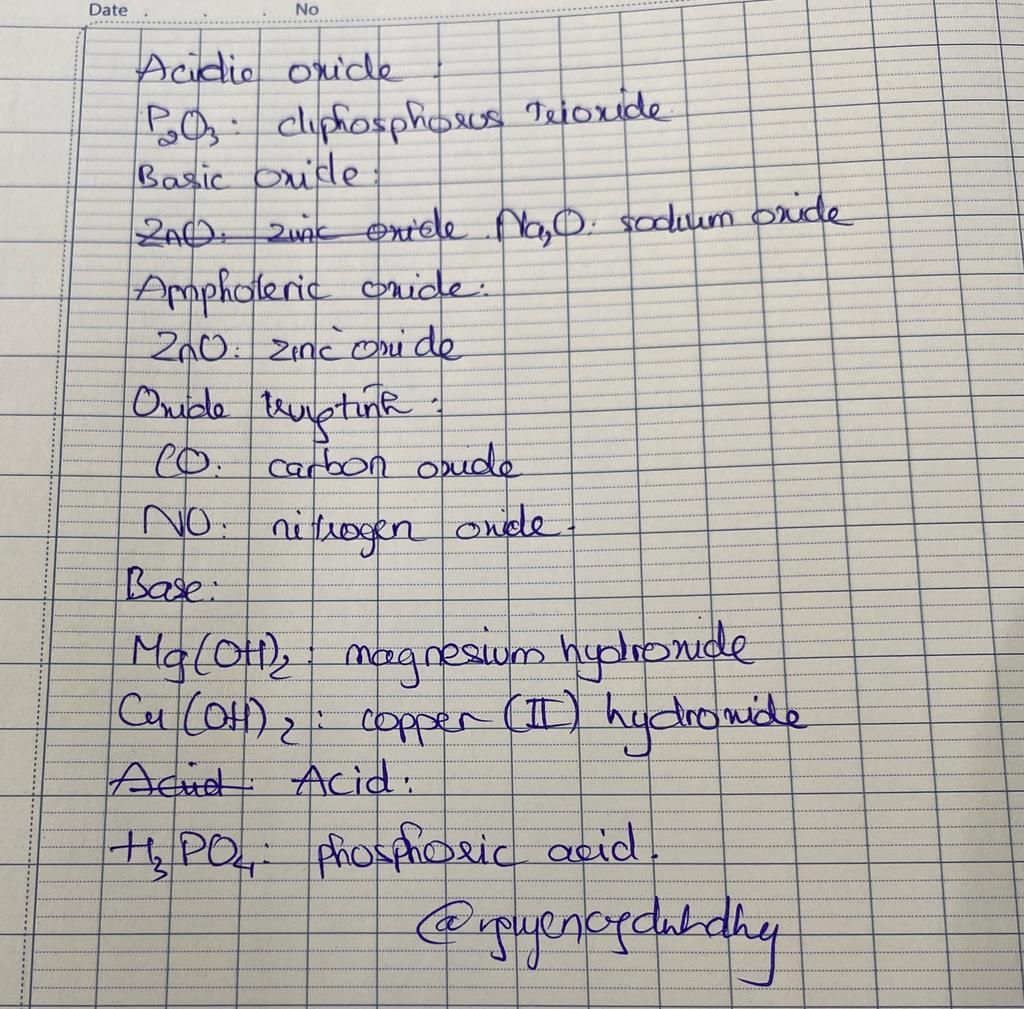 Date . . . No
Acidic oxide :
P₂O₃ : diphosphorus Trioxide
Basic oxide :
ZnO : zinc oxide . Na₂O : sodium oxide
Amphoteric oxide :
ZnO : zinc oxide
Oxide trung tính :
CO : carbon oxide
NO : nitrogen oxide .
Base :
Mg(OH)₂ : magnesium hydroxide
Cu(OH)₂ : copper (II) hydroxide
Acid : Acid :
H₃PO₄ : phosphoric acid .